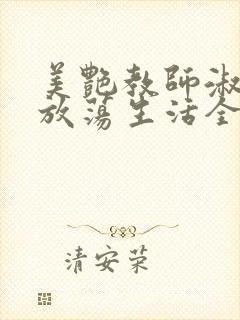 美艷教師淑
放蕩生活全
清安荣